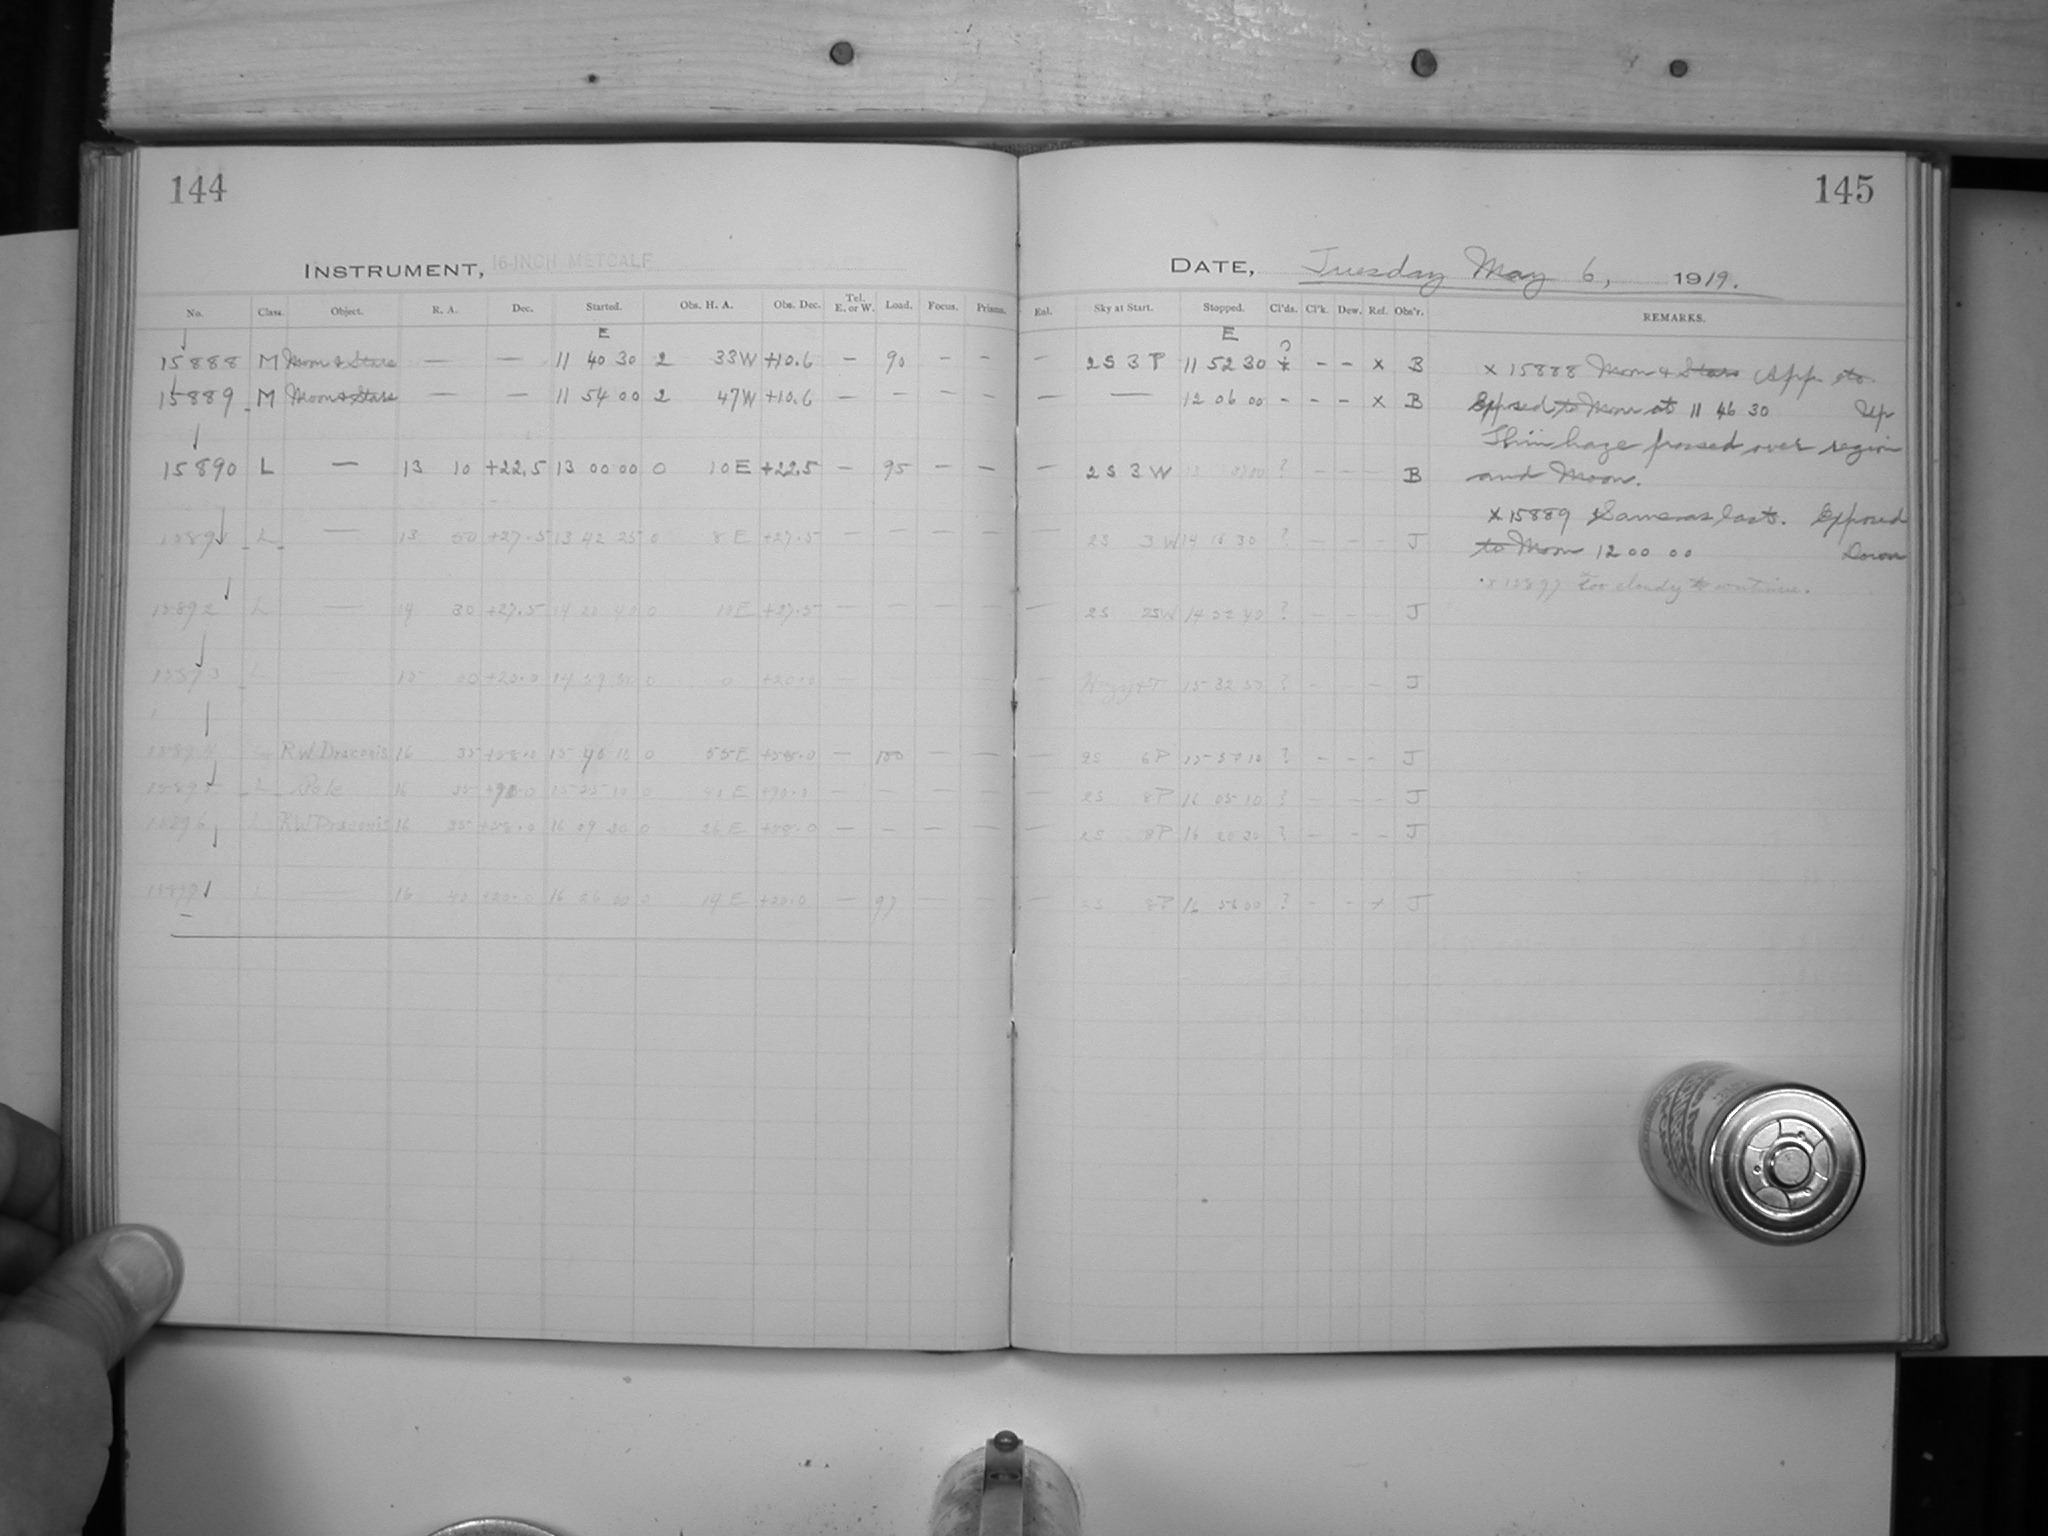 144
INSTRUMENT, 16-INCH METCALF
No. Class. Object. R. A. Dec. Started. Obs. H. A. Obs. Dec. Tel. E. or W. Load. Focus. Prisms.
E
15888 M Moon & Stars — — 11 40 30 2 33W +10.6 — 90 — —
15889 M Moon & Stars — — 11 54 00 2 47W +10.6 — — — —
15890 L — 13 10 +22.5 13 00 00 0 10E +22.5 — 95 — —
15891 L — 13 50 +27.5 13 42 25 0 8E +27.5 — — — —
15892 L — 14 30 +27.5 14 20 40 0 10E +27.5 — — — —
15893 L — 15 00 +20.0 14 59 0 0 +20.0 — — — —
15894 RW Draconis 16 35 +58.0 15 40 10 0 55E +58.0 — 100 — —
15895 L Pole 16 35 +90.0 15 55 10 0 E +90.0 — — — —
15896 L RW Draconis 16 35 +58.0 16 09 20 0 26E +58.0 — — — —
15897 L — 16 40 +20.0 16 26 00 0 14E +20.0 — 97 — —
145
DATE, Tuesday May 6, 1919.
Enl. Sky at Start. Stopped. Cl'ds. Cl'k. Dew. Ref. Obs'r. REMARKS.
E
— 2S 3P 11 52 30 ? — — x B
— — 12 06 00 - - - x B
— 2S 3W ? - - - B
— 2S 3W 14 16 30 ? - - - J
— 2S 2SW 14 52 40 ? - - - J
— 15 32 50 ? - - - J
— 2S 6P 15 57 10 ? - - - J
— 2S 8P 16 05 10 ? - - - J
— 2S 8P 16 20 20 ? - - - J
— 2S 8P 16 56 00 ? - - x J
x 15888 Moon & Stars App. to
Exposed to Moon at 11 46 30 Up
Thin haze passed over region
and Moon.
x 15889 Same as last. Exposed
to Moon 12 00 00 Down
x 15897 too cloudy to continue.